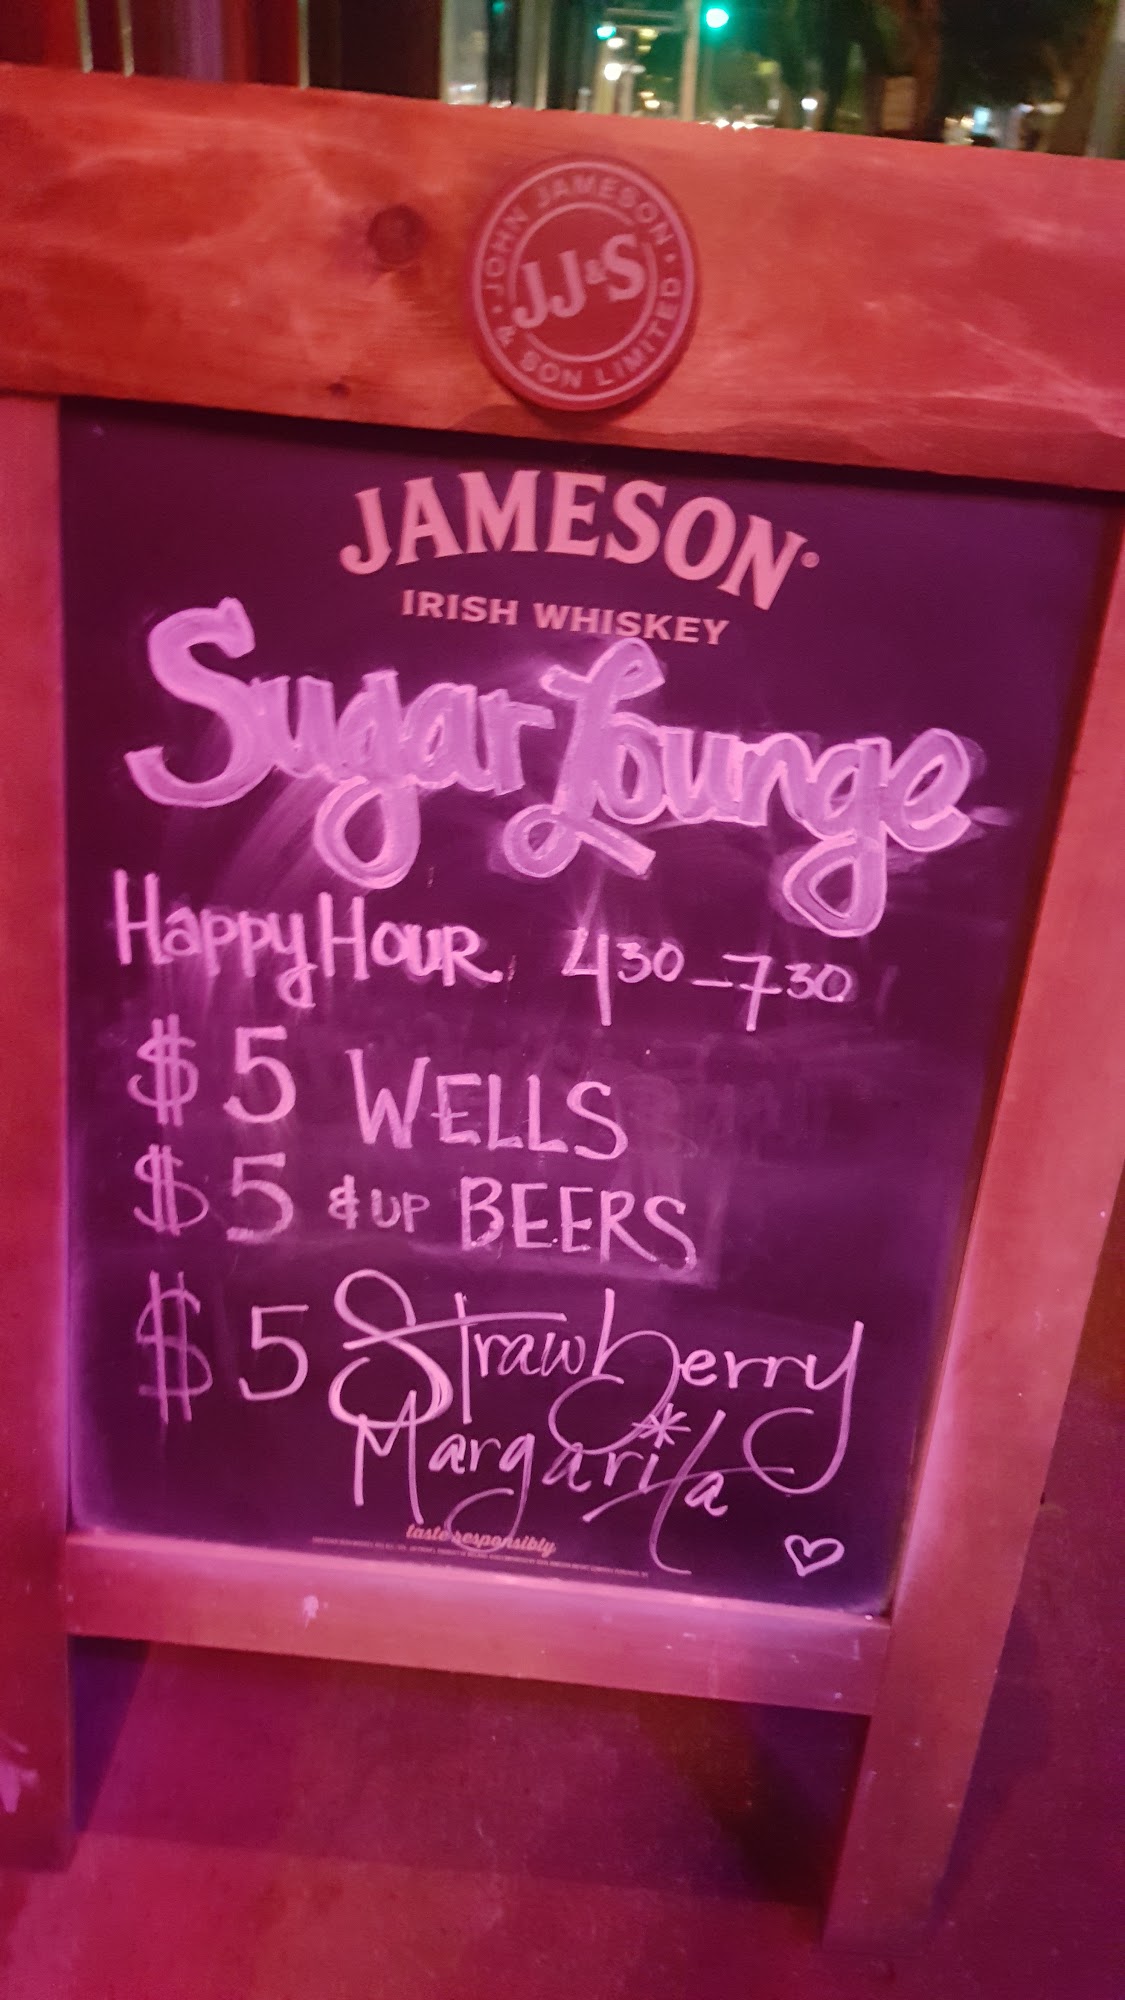 JOHN JAMESON
& SON LIMITED
JJ&S
JAMESON
IRISH WHISKEY
Sugar Lounge
Happy Hour 430-730
$5 WELLS
$5 & UP BEERS
$5 Strawberry
Margarita
taste responsibly